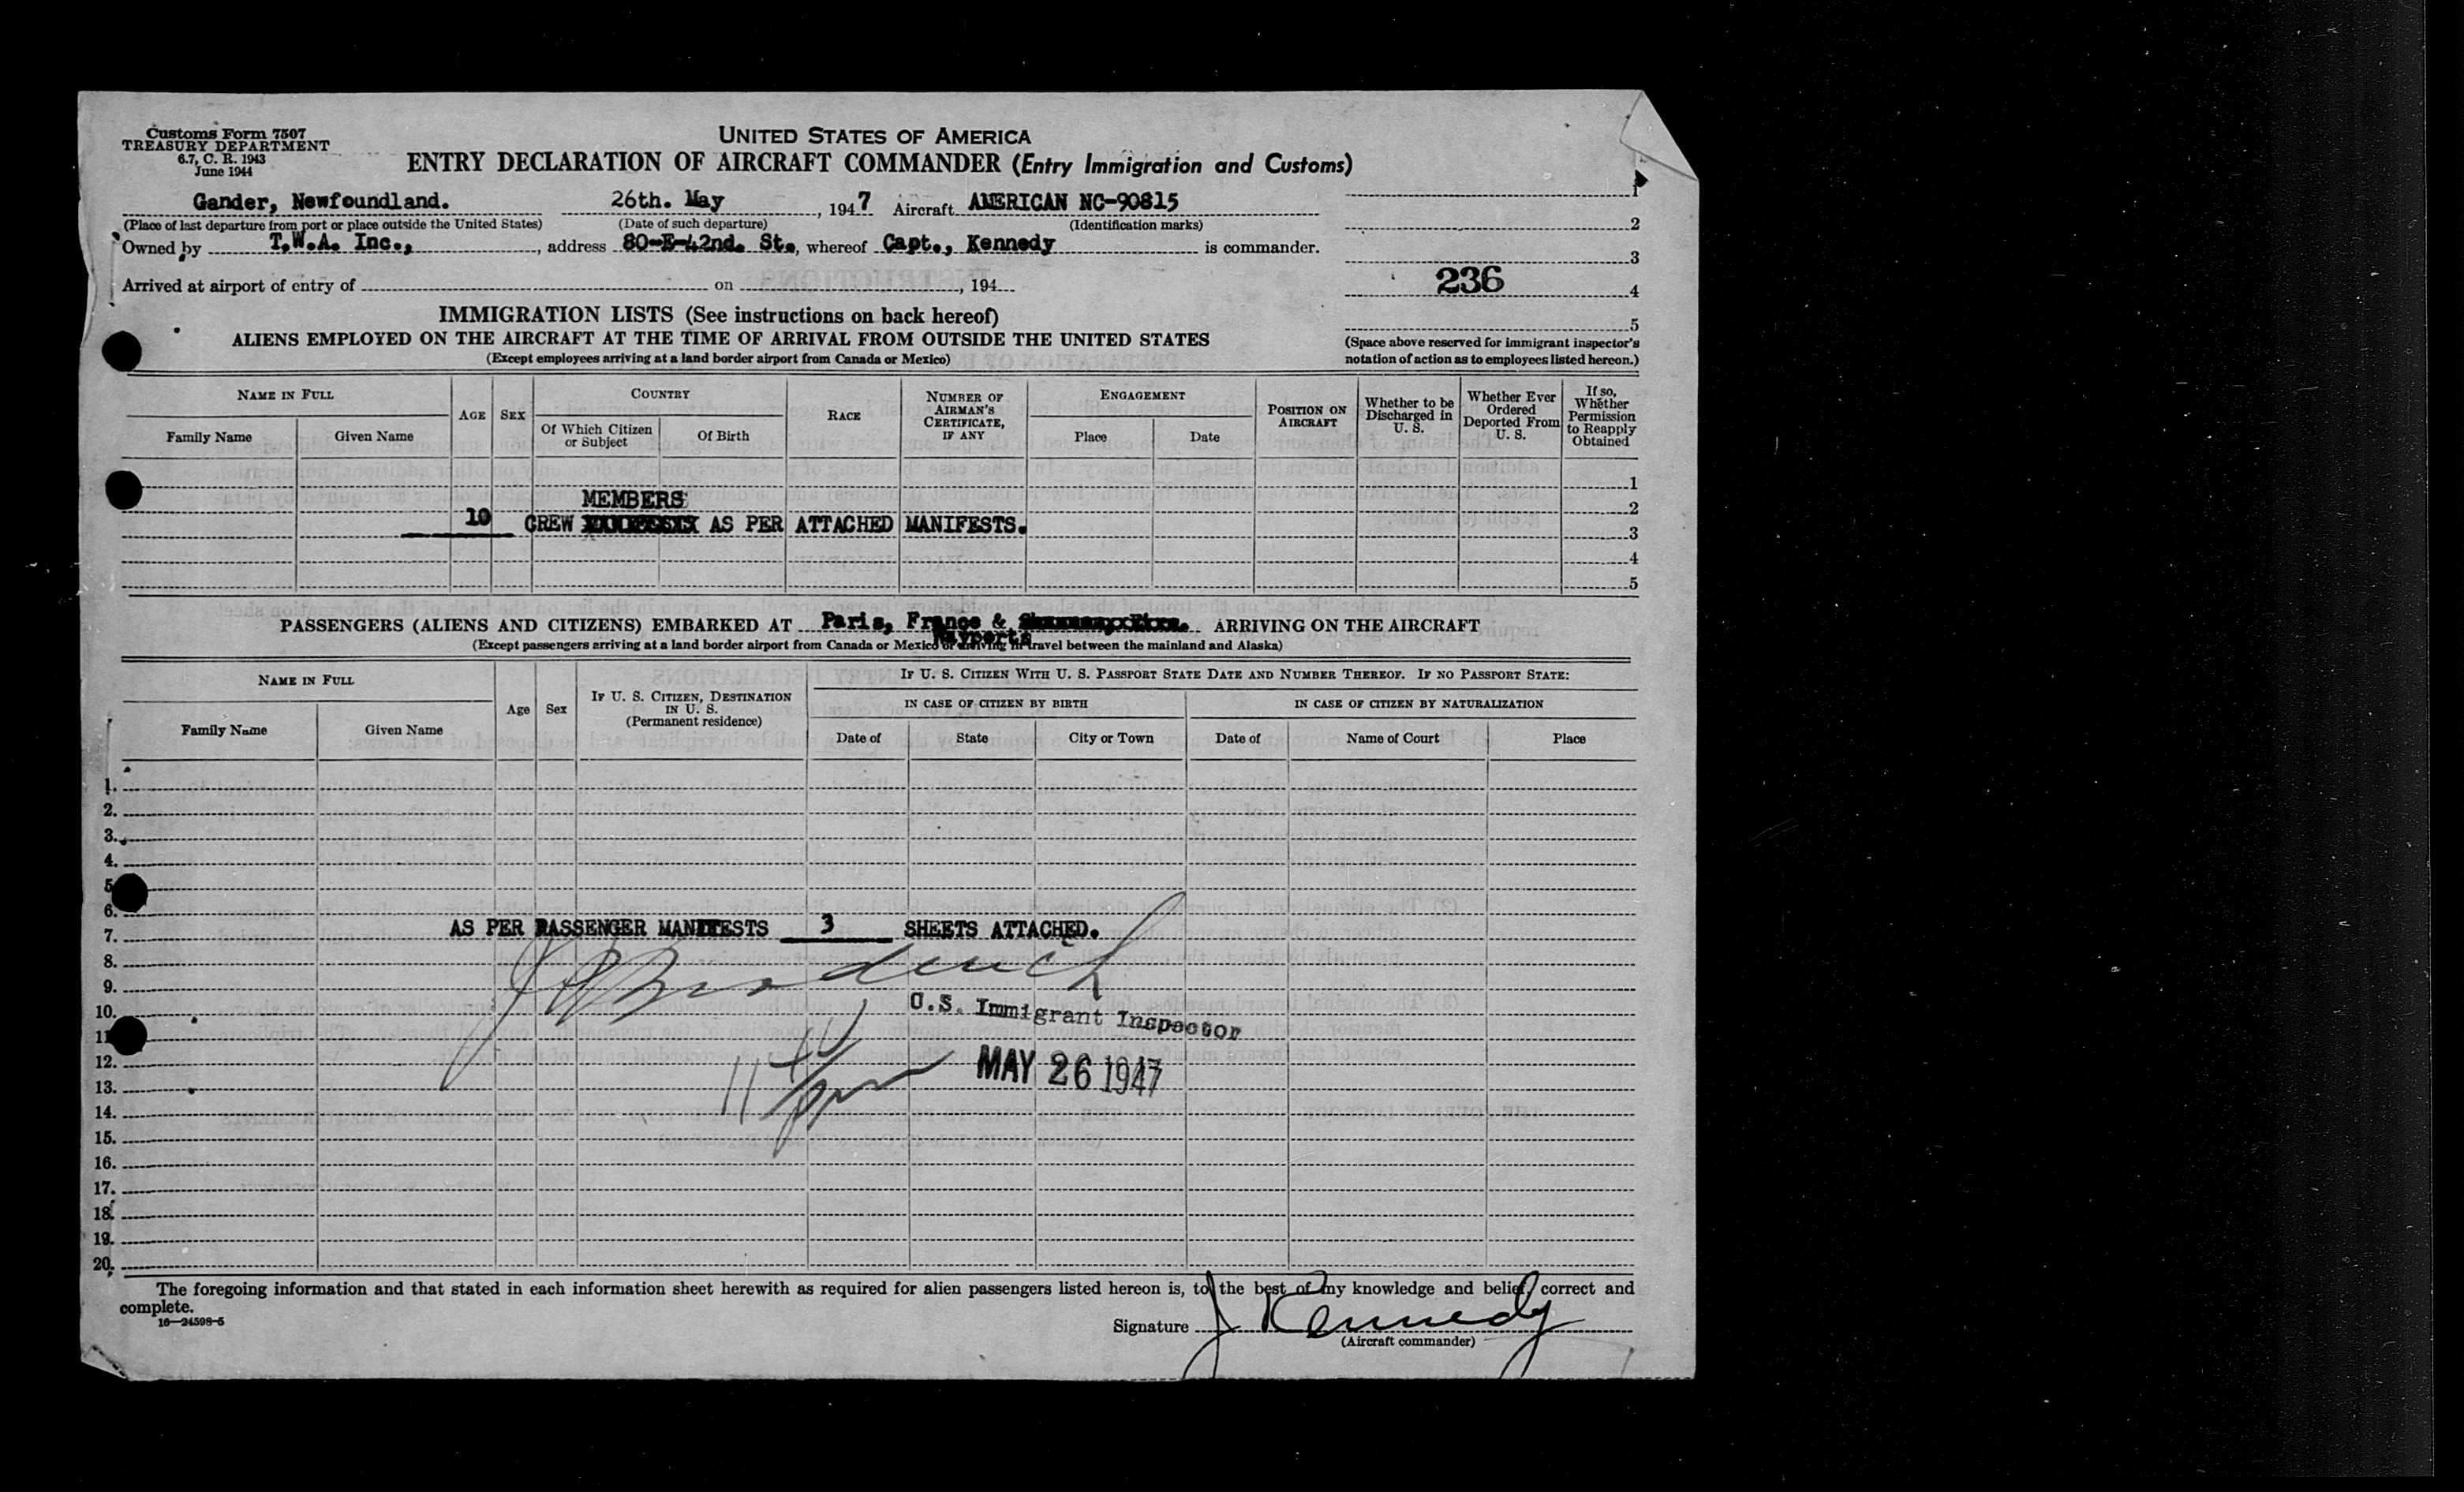 Customs Form 7507
TREASURY DEPARTMENT
6.7, C. R. 1943
June 1944
UNITED STATES OF AMERICA
ENTRY DECLARATION OF AIRCRAFT COMMANDER (Entry Immigration and Customs)
Gander, Newfoundland. 26th. May, 1947 Aircraft AMERICAN NC-90815
(Place of last departure from port or place outside the United States) (Date of such departure) (Identification marks)
Owned by T.W.A. Inc., address 80-E-42nd. St., whereof Capt., Kennedy is commander.
Arrived at airport of entry of on , 194
1
2
3
236 4
5
(Space above reserved for immigrant inspector's
notation of action as to employees listed hereon.)
IMMIGRATION LISTS (See instructions on back hereof)
ALIENS EMPLOYED ON THE AIRCRAFT AT THE TIME OF ARRIVAL FROM OUTSIDE THE UNITED STATES
(Except employees arriving at a land border airport from Canada or Mexico)
NAME IN FULL
Family Name
Given Name
AGE
SEX
COUNTRY
Of Which Citizen
or Subject
Of Birth
RACE
NUMBER OF
AIRMAN'S
CERTIFICATE,
IF ANY
ENGAGEMENT
Place
Date
POSITION ON
AIRCRAFT
Whether to be
Discharged in
U. S.
Whether Ever
Ordered
Deported From
U. S.
If so,
Whether
Permission
to Reapply
Obtained
1
MEMBERS
2
10 CREW AS PER ATTACHED MANIFESTS.
3
4
5
PASSENGERS (ALIENS AND CITIZENS) EMBARKED AT Paris, France & ARRIVING ON THE AIRCRAFT
Wayports
(Except passengers arriving at a land border airport from Canada or Mexico or arriving in travel between the mainland and Alaska)
NAME IN FULL
Family Name
Given Name
Age
Sex
IF U. S. CITIZEN, DESTINATION
IN U. S.
(Permanent residence)
IF U. S. CITIZEN WITH U. S. PASSPORT STATE DATE AND NUMBER THEREOF. IF NO PASSPORT STATE:
IN CASE OF CITIZEN BY BIRTH
Date of
State
City or Town
IN CASE OF CITIZEN BY NATURALIZATION
Date of
Name of Court
Place
1.
2.
3.
4.
5
6.
AS PER PASSENGER MANIFESTS 3 SHEETS ATTACHED.
7.
8.
9.
10.
U.S. Immigrant Inspector
11
12.
MAY 26 1947
13.
14.
15.
16.
17.
18.
19.
20.
The foregoing information and that stated in each information sheet herewith as required for alien passengers listed hereon is, to the best of my knowledge and belief, correct and
complete.
16—24598-5
Signature J Kennedy
(Aircraft commander)